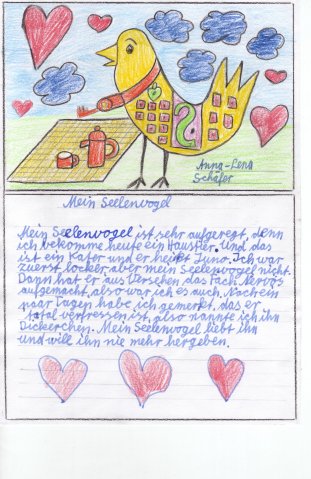 Anna-Lena
Schäfer
Mein Seelenvogel
Mein Seelenvogel ist sehr aufgeregt, denn
ich bekomme heute ein Haustier. Und das
ist ein Kater und er heißt Juno. Ich war
zuerst locker, aber mein Seelenvogel nicht.
Dann hat er aus Versehen das Fach Nervös
aufgemacht, also war ich es auch. Nach ein
paar Tagen habe ich gemerkt, das er
total verfressen ist, also nannte ich ihn
Dickerchen. Mein Seelenvogel liebt ihn
und will ihn nie mehr hergeben.